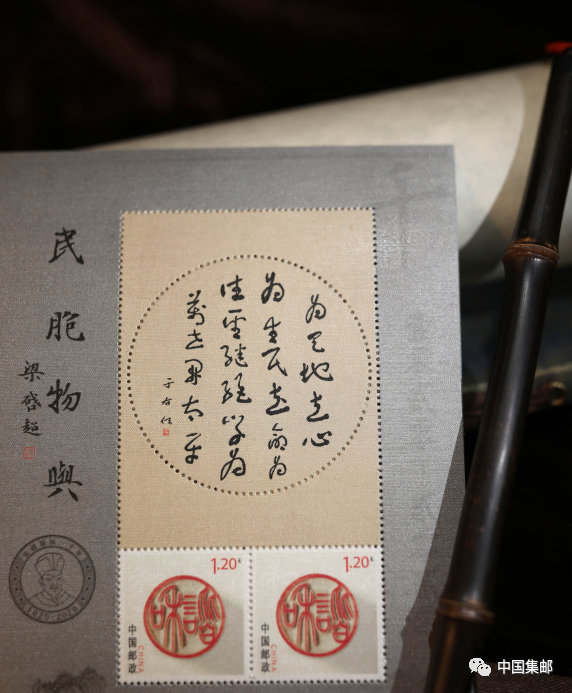 民胞物與
梁啓超
为天地立心
为生民立命为
往聖继绝学为
萬世開太平
于右任
1.20元
和諧
中国邮政
CHINA
1.20元
和諧
中国邮政
CHINA
中国集邮